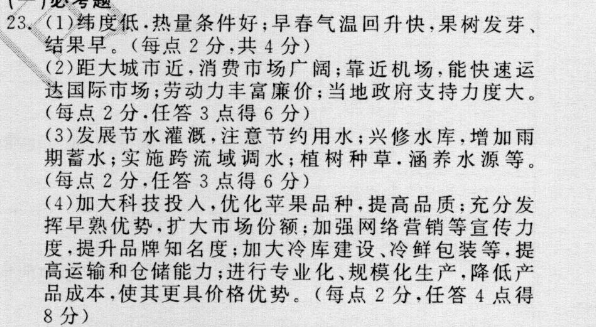 (一)必考题
23. (1)纬度低,热量条件好;早春气温回升快,果树发芽、
结果早。(每点2分,共4分)
(2)距大城市近,消费市场广阔;靠近机场,能快速运
达国际市场;劳动力丰富廉价;当地政府支持力度大。
(每点2分,任答3点得6分)
(3)发展节水灌溉,注意节约用水;兴修水库,增加雨
期蓄水;实施跨流域调水;植树种草,涵养水源等。
(每点2分,任答3点得6分)
(4)加大科技投入,优化苹果品种,提高品质;充分发
挥早熟优势,扩大市场份额;加强网络营销等宣传力
度,提升品牌知名度;加大冷库建设、冷鲜包装等,提
高运输和仓储能力;进行专业化、规模化生产,降低产
品成本,使其更具价格优势。(每点2分,任答4点得
8分)